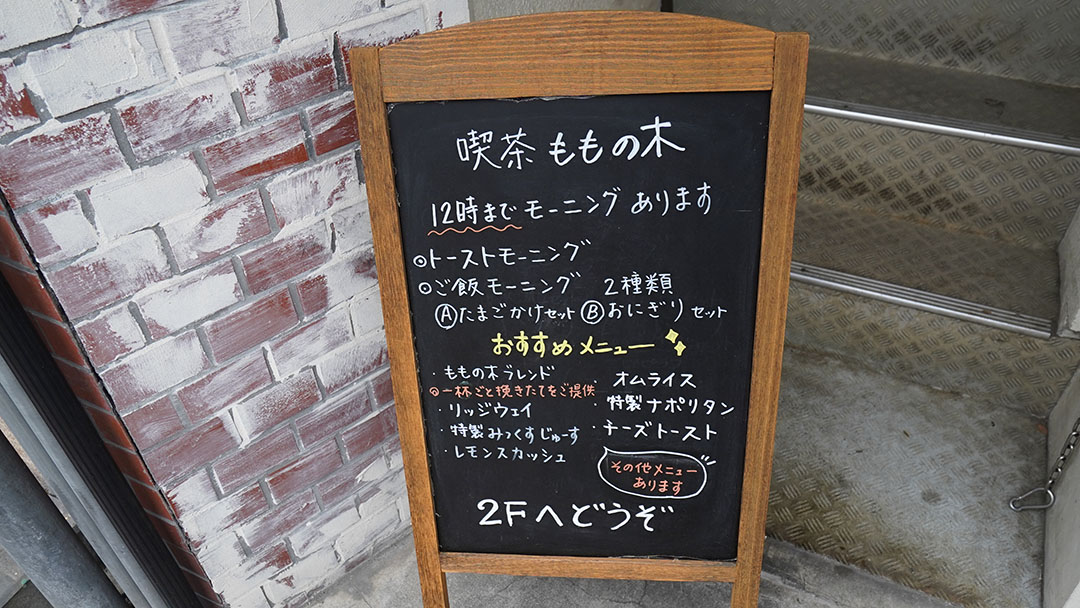 喫茶 ももの木
12時まで モーニング あります
◎トーストモーニング
◎ご飯モーニング 2種類
Ⓐたまごかけセット Ⓑおにぎりセット
おすすめメニュー
・ももの木ブレンド
◎一杯ごと挽きたてをご提供
・リッジウェイ
・特製みっくすじゅーす
・レモンスカッシュ
・オムライス
・特製ナポリタン
・チーズトースト
その他メニュー
あります
2Fへどうぞ